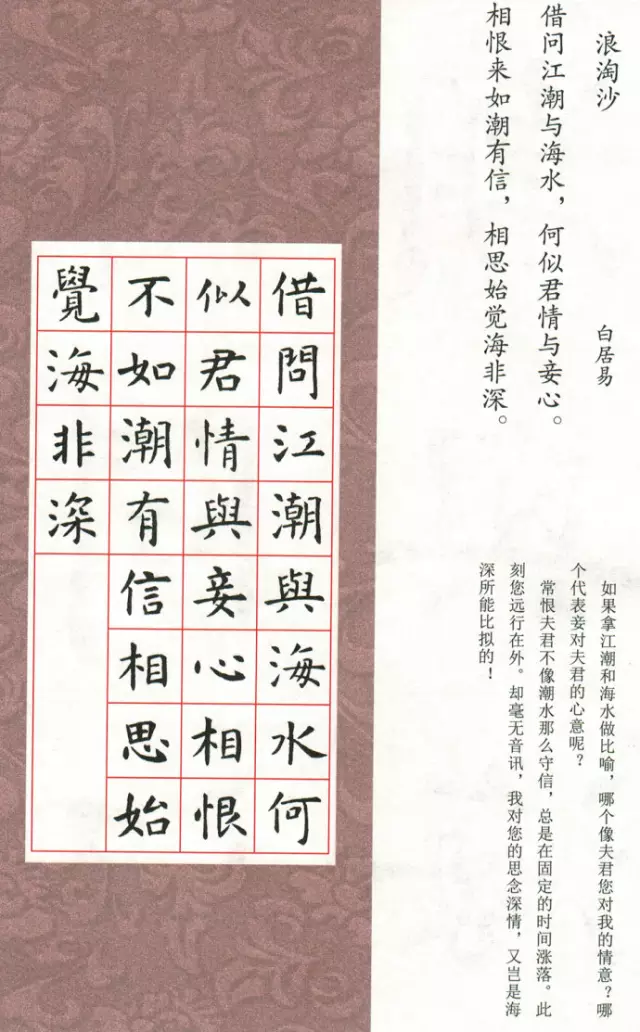 浪淘沙
白居易
借问江潮与海水，何似君情与妾心。
相恨来如潮有信，相思始觉海非深。
如果拿江潮和海水做比喻，哪个像夫君您对我的情意？哪
个代表妾对夫君的心意呢？
常恨夫君不像潮水那么守信，总是在固定的时间涨落。此
刻您远行在外。却毫无音讯，我对您的思念深情，又岂是海
深所能比拟的！
借問江潮與海水何
似君情與妾心相恨
不如潮有信相思始
覺海非深